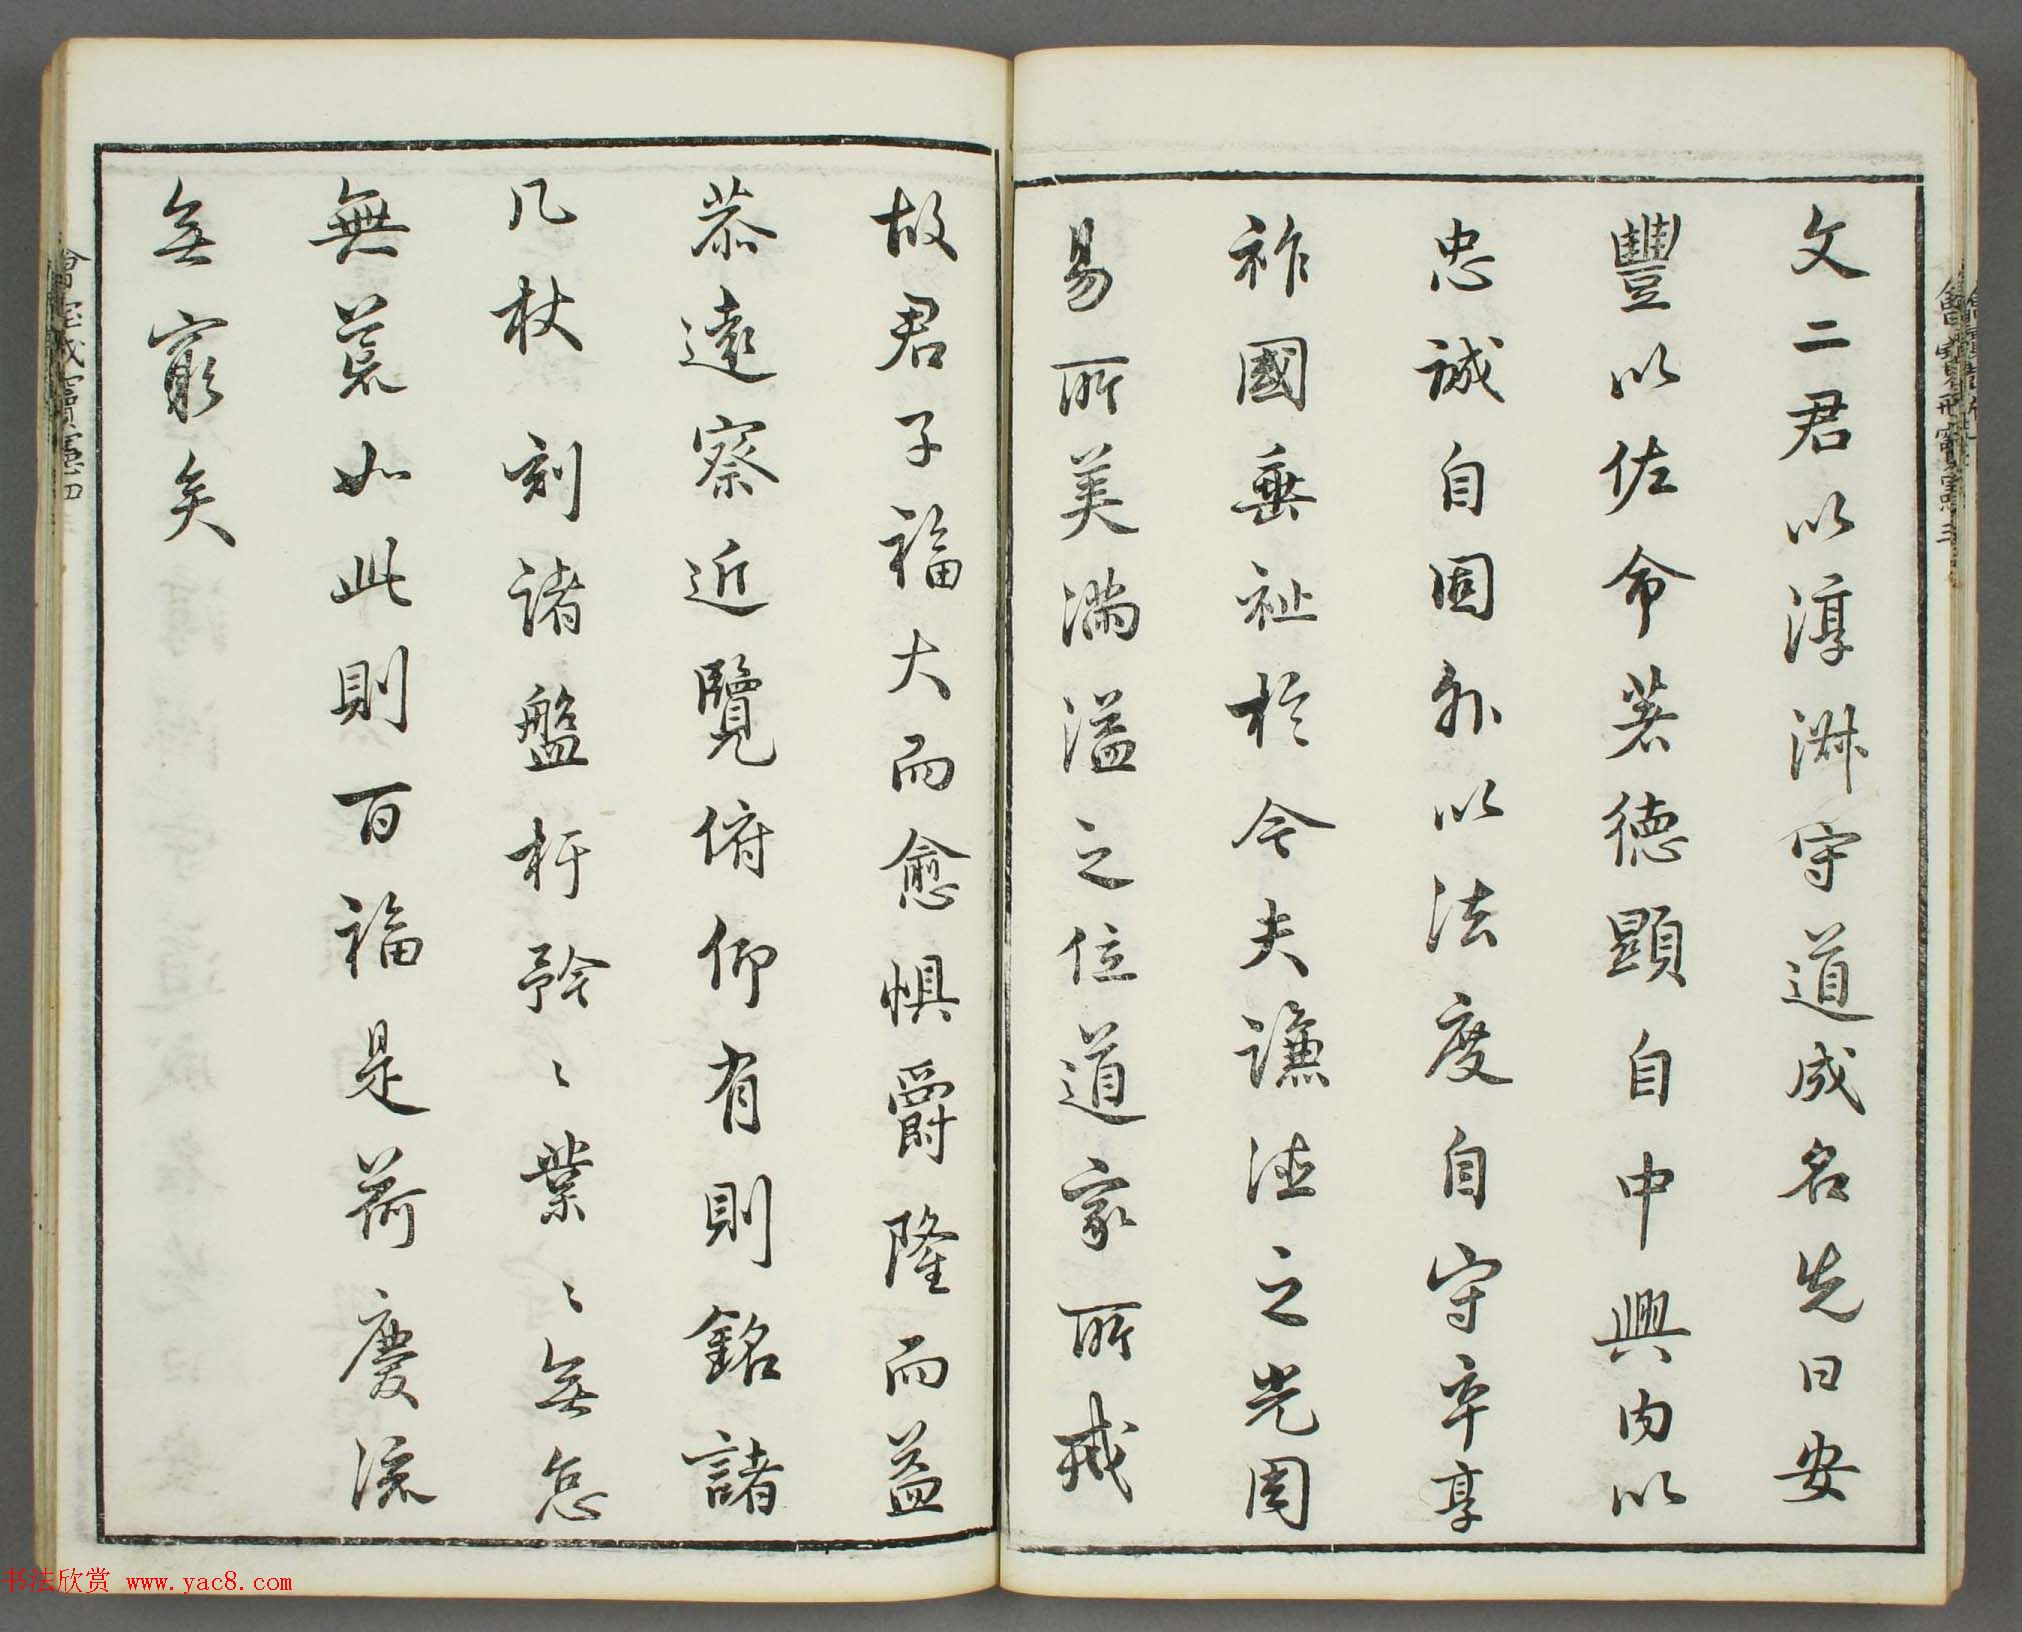 文二君以淳淑守道成名先日安
豐以佐命著德顯自中興内以
忠誠自固外以法度自守卒享
祚國垂祉於今夫謙德之光周
易所美滿溢之位道家所戒
故君子福大而愈惧爵隆而益
恭遠察近覽俯仰有則銘諸
几杖刻諸盤杅矜〻業〻無怠
無荒如此則百福是荷慶流
無窮矣
崔寔戒竇憲四
书法欣赏 www.yac8.com